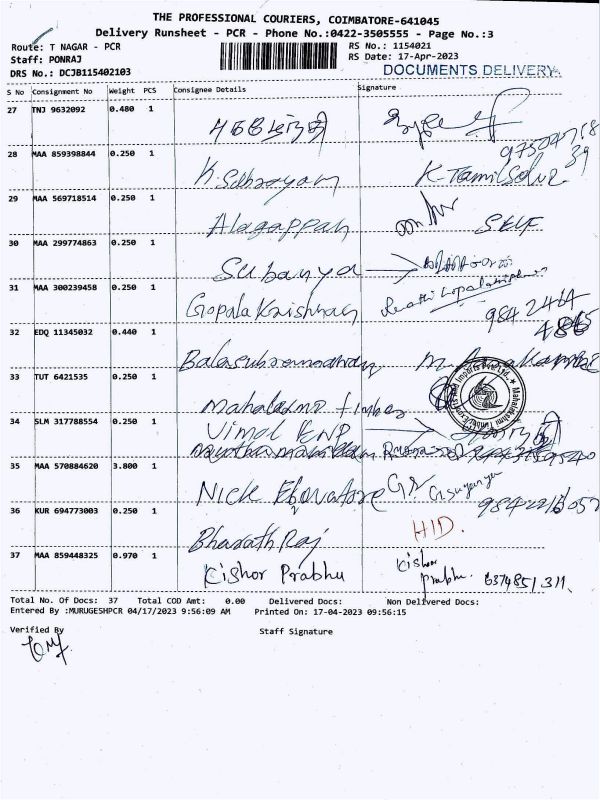 THE PROFESSIONAL COURIERS, COIMBATORE-641045
Delivery Runsheet - PCR - Phone No.:0422-3505555 - Page No.:3
Route: T NAGAR - PCR
RS No.: 1154021
Staff: PONRAJ
RS Date: 17-Apr-2023
DRS No.: DCJB115402103
DOCUMENTS DELIVERY.
S No Consignment No Weight PCS Consignee Details Signature
27 TNJ 9632092 0.480 1
28 MAA 859398844 0.250 1
K. Subrayan K. Tamilselvi
29 MAA 569718514 0.250 1
Alagappan SELF
30 MAA 299774863 0.250 1
Subanya
31 MAA 300239458 0.250 1
Gopala Krishnan
984 2464
32 EDQ 11345032 0.440 1
Balasubramanian
33 TUT 6421535 0.250 1
Mahalaxmi timber
34 SLM 317788554 0.250 1
Vimal
35 MAA 570884620 3.800 1
Nick
36 KUR 694773003 0.250 1
Bharath Raj HID.
37 MAA 859448325 0.970 1
Kishor Prabhu Kishor
Prabhu. 6374851311.
Total No. Of Docs: 37 Total COD Amt: 0.00 Delivered Docs: Non Delivered Docs:
Entered By :MURUGESHPCR 04/17/2023 9:56:09 AM Printed On: 17-04-2023 09:56:15
Verified By Staff Signature